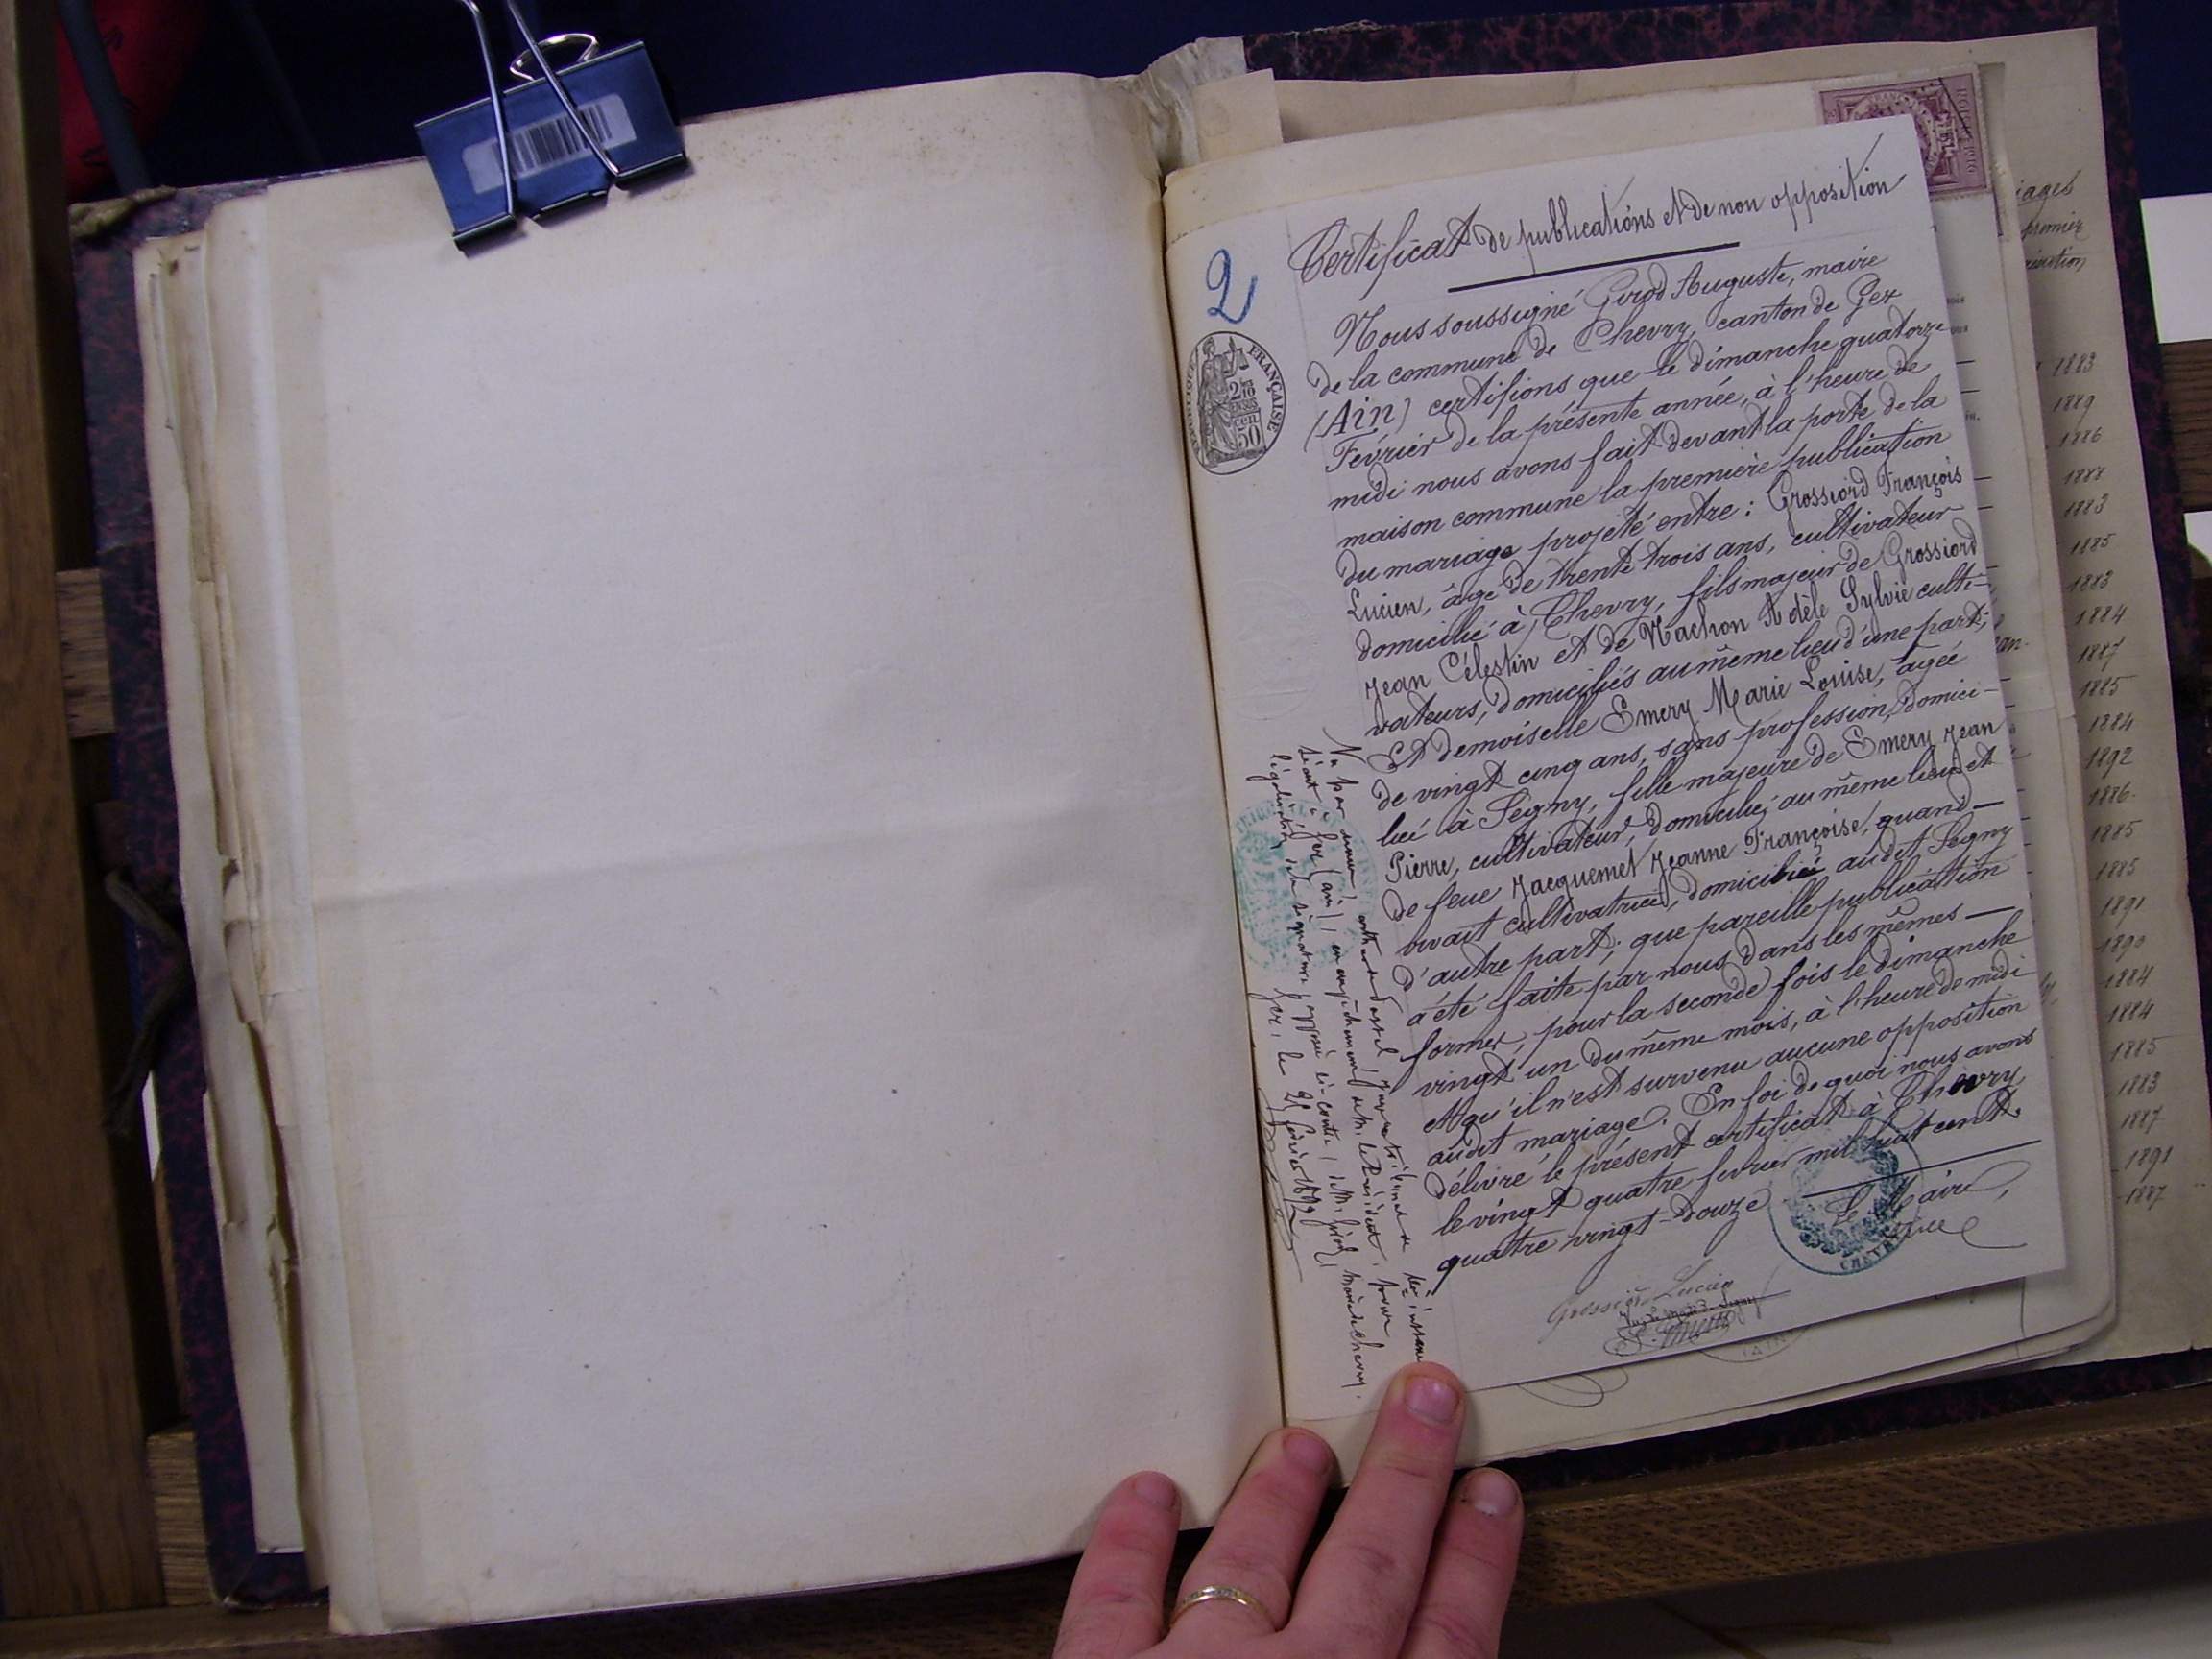 2
Certificat de publications et de non opposition
Nous soussigné Girod Auguste, maire
de la commune de Chevry, canton de Gex
(Ain) certifions que le dimanche quatorze
Février de la présente année, à l'heure de
midi nous avons fait devant la porte de la
maison commune la première publication
du mariage projeté entre : Grossiord François
Lucien, âgé de trente trois ans, cultivateur
domicilié à Chevry, fils majeur de Grossiord
Jean Célestin et de Machon Adèle Sylvie culti-
vateurs, domiciliés au même lieu d'une part;
Et demoiselle Emery Marie Louise, âgée
de vingt cinq ans, sans profession, domici-
liée à Segny, fille majeure de Emery Jean
Pierre, cultivateur, domicilié au même lieu et
de feue Jacquemet Jeanne Françoise, quand
vivait cultivatrice, domiciliée audit Segny
d'autre part; que pareille publication
a été faite par nous dans les mêmes
formes, pour la seconde fois le dimanche
vingt un du même mois, à l'heure de midi
et qu'il n'est survenu aucune opposition
audit mariage. En foi de quoi nous avons
délivré le présent certificat à Chevry,
le vingt quatre février mil huit cent
quatre vingt-douze
Le Maire,
Grossiord Lucien
CHEVRY
AIN
FRANÇAISE
2/10
EN SUS
50
Vu par
séant à Gex (ain) en empêchement de M. le Président, pour
légalisation de la signature apposée ci-contre, de M. Girod, maire de Chevry.
Gex, le 25 février 1892
iages
premier
1883
1889
1886
1888
1883
1885
1883
1884
1887
1885
1884
1892
1886
1885
1885
1891
1890
1884
1884
1885
1883
1887
1891
1887